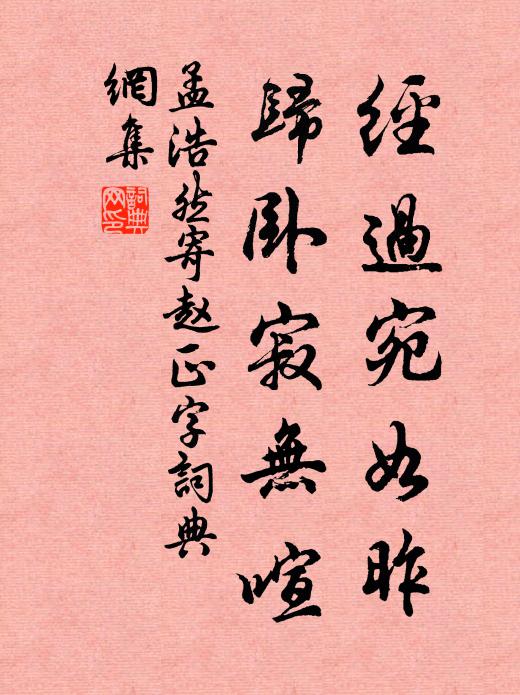 經過宛如昨
歸卧寂無喧
孟浩然寄赵正字詞典
網集
詞典网印